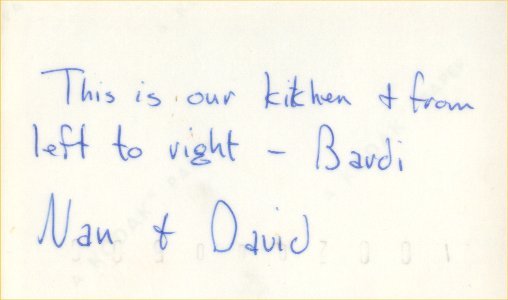 This is our kitchen + from
left to right - Bardi
Nan + David